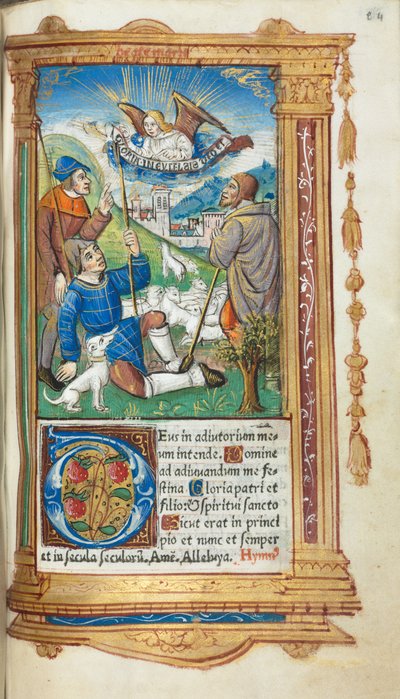 Eus in adiutorium me-
um intende. Domine
ad adiuuandum me fe-
stina Gloria patri et
filio: & spiritui sancto
Sicut erat in princi
pio et nunc et semper
et in secula seculorū. Amē. Alleluya. Hymn⁹